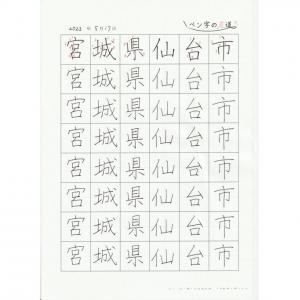 2022 年 5月17日
ペン字の王道
宮城県仙台市
宮城県仙台市
宮城県仙台市
宮城県仙台市
宮城県仙台市
宮城県仙台市
宮城県仙台市
宮城県仙台市